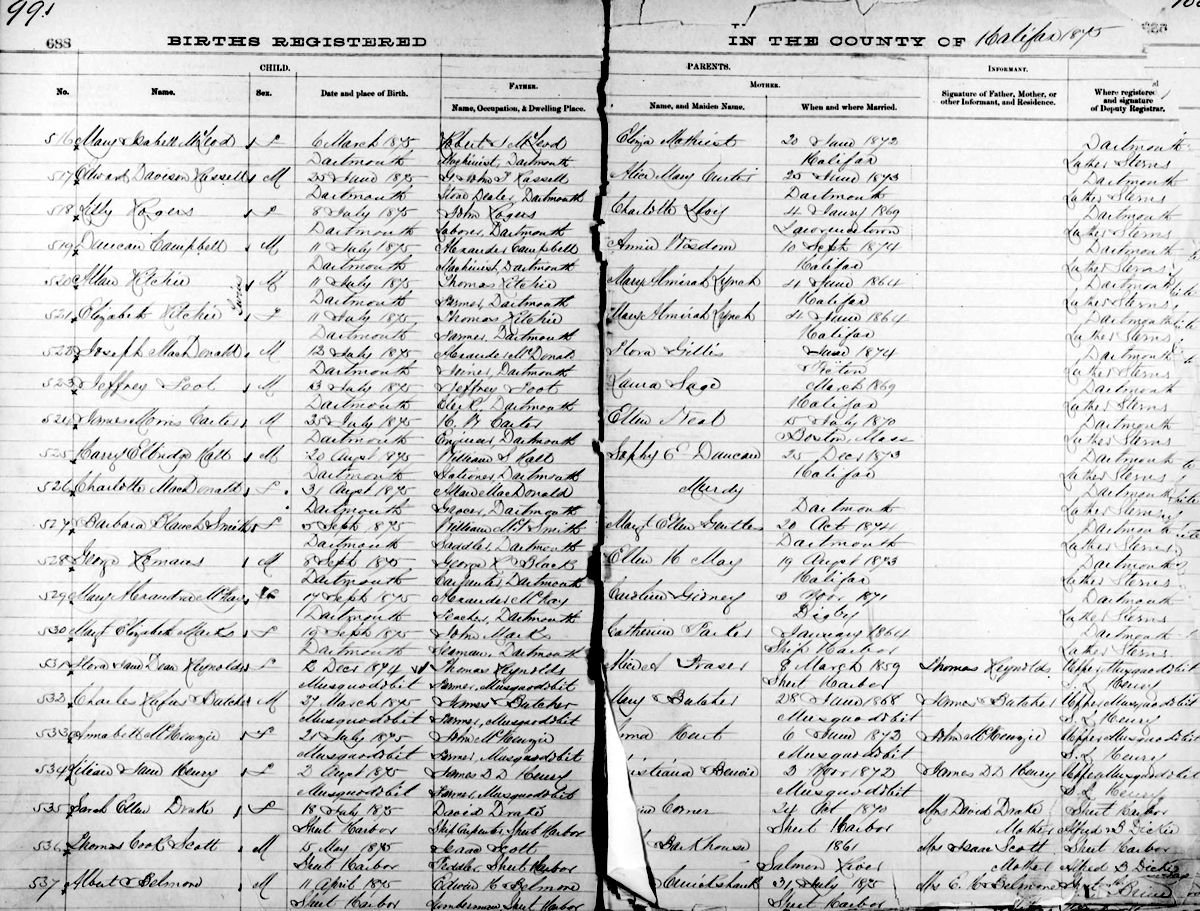 991
688 BIRTHS REGISTERED IN THE COUNTY OF Halifax 1875
CHILD. PARENTS.
FATHER. MOTHER. INFORMANT.
No. Name. Sex. Date and place of Birth. Name, Occupation, & Dwelling Place. Name, and Maiden Name. When and where Married. Signature of Father, Mother, or other Informant, and Residence. Where registered and signature of Deputy Registrar.
516 Mary Isabell McLeod F 6 March 1875 Robert McLeod Eliza 20 June 1872 Dartmouth
Dartmouth Machinist, Dartmouth Halifax Luther Sterns
517 Edward Davison Russell M 25 June 1875 John F Russell Alice Mary Curtis 25 June 1873 Dartmouth
Dartmouth Stove Dealer, Dartmouth Dartmouth Luther Sterns
518 Lilly Rogers F 8 July 1875 John Rogers Charlotte 4 1869 Dartmouth
Dartmouth Laborer, Dartmouth Lawrencetown Luther Sterns
519 Duncan Campbell M 11 July 1875 Alexander Campbell Annie Wisdom 10 Sept 1874 Dartmouth
Dartmouth Machinist, Dartmouth Halifax Luther Sterns
520 Allan Ritchie M 11 July 1875 Thomas Ritchie Mary Almirah Lynch 4 June 1864 Dartmouth
Twins
Dartmouth Farmer, Dartmouth Halifax Luther Sterns
521 Elizabeth Ritchie F 11 July 1875 Thomas Ritchie Mary Almirah Lynch 4 June 1864 Dartmouth
Dartmouth Farmer, Dartmouth Halifax Luther Sterns
522 Joseph MacDonald M 12 July 1875 Alexander McDonald Flora Gillis June 1874 Dartmouth
Dartmouth Dartmouth Pictou Luther Sterns
523 Jeffrey Foot M 13 July 1875 Jeffrey Foot Laura Sage March 1869 Dartmouth
Dartmouth Clerk, Dartmouth Halifax Luther Sterns
524 James Morris Carter M 25 July 1875 Carter Ellen Neal 15 July 1870 Dartmouth
Dartmouth Engineer, Dartmouth Boston, Mass Luther Sterns
525 Harry Elbridge Hall M 20 Augst 1875 William S Hall Sophy E Duncan 25 Decr 1873 Dartmouth
Dartmouth Stationer, Dartmouth Halifax Luther Sterns
526 Charlotte MacDonald F 31 Augst 1875 Allan MacDonald Dartmouth
Dartmouth Grocer, Dartmouth Dartmouth Luther Sterns
527 Barbara Blanch Smith F 5 Sept 1875 William Smith Margt Ellen 20 Oct 1874 Dartmouth
Dartmouth Saddler, Dartmouth Dartmouth Luther Sterns
528 George M 8 Sept 1875 George Black Ellen H May 19 Augst 1873 Dartmouth
Dartmouth Carpenter, Dartmouth Halifax Luther Sterns
529 Mary Alexandra McKay F 17 Sept 1875 Alexander McKay Caroline Gidney 3 1871 Dartmouth
Dartmouth Teacher, Dartmouth Digby Luther Sterns
530 Margt Elizabeth Marks F 19 Sept 1875 John Marks Catherine Parker January 1864 Dartmouth
Dartmouth Seaman, Dartmouth Ship Harbor Luther Sterns
531 Flora Jane Dean Reynolds F 12 Decr 1874 Thomas Reynolds Fraser 8 March 1859 Thomas Reynolds Upper Musquodobit
Musquodobit Farmer, Musquodobit Sheet Harbor S. L. Henry
532 Charles Rufus Butcher M 27 March 1875 James Butcher Mary Butcher 28 June 1868 James Butcher Upper Musquodobit
Musquodobit Farmer, Musquodobit Musquodobit S. L. Henry
533 Annabell McKenzie F 21 July 1875 John McKenzie Kent 6 June 1872 John McKenzie Upper Musquodobit
Musquodobit Farmer, Musquodobit Musquodobit S. L. Henry
534 Lilian Jane Henry F 2 Augst 1875 James D D Henry 3 1872 James D D Henry Upper Musquodobit
Musquodobit Farmer, Musquodobit Musquodobit S. L. Henry
535 Sarah Ellen Drake F 18 July 1875 David Drake Corner 24 1870 Mrs David Drake Sheet Harbor
Sheet Harbor Ship Carpenter, Sheet Harbor Sheet Harbor Mother Alfred B Dickie
536 Thomas Cook Scott M 15 May 1875 Isaac Scott Barkhouse 1861 Mrs Isaac Scott Sheet Harbor
Sheet Harbor Pedler, Sheet Harbor Salmon River Mother Alfred B Dickie
537 Albert Belmond M 11 April 1875 Edwin C Belmond Cruickshank 31 July 1875 Mrs E. C. Belmond
Sheet Harbor Lumberman, Sheet Harbor Sheet Harbor